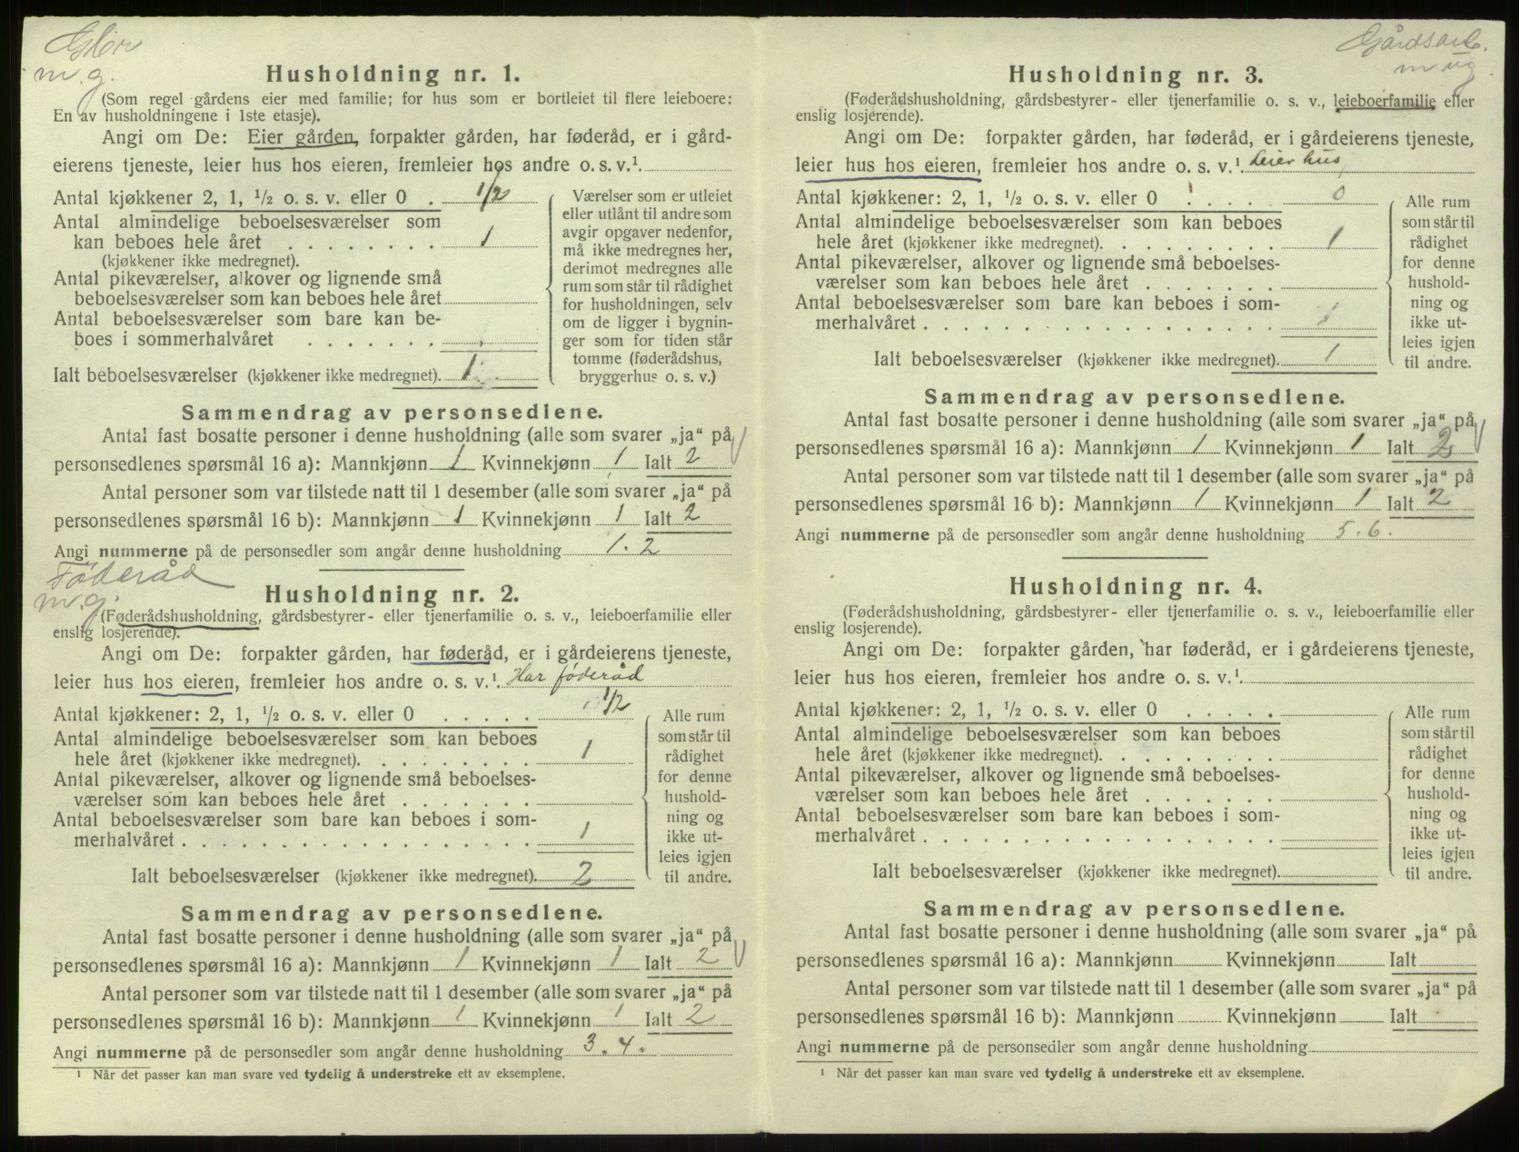 Gbr
m. g.
Husholdning nr. 1.
(Som regel gårdens eier med familie; for hus som er bortleiet til flere leieboere:
En av husholdningene i 1ste etasje).
Angi om De: Eier gården, forpakter gården, har føderåd, er i gård-
eierens tjeneste, leier hus hos eieren, fremleier hos andre o. s. v.¹
Antal kjøkkener 2, 1, ½ o. s. v. eller 0 . 1/2
Antal almindelige beboelsesværelser som
kan beboes hele året . . . . . . . . 1
(kjøkkener ikke medregnet).
Antal pikeværelser, alkover og lignende små
beboelsesværelser som kan beboes hele året
Antal beboelsesværelser som bare kan be-
boes i sommerhalvåret . . . . . . .
Ialt beboelsesværelser (kjøkkener ikke medregnet). 1
Værelser som er utleiet
eller utlånt til andre som
avgir opgaver nedenfor,
må ikke medregnes her,
derimot medregnes alle
rum som står til rådighet
for husholdningen, selv
om de ligger i bygnin-
ger som for tiden står
tomme (føderådshus,
bryggerhus o. s. v.)
Sammendrag av personsedlene.
Antal fast bosatte personer i denne husholdning (alle som svarer „ja“ på
personsedlenes spørsmål 16 a): Mannkjønn 1 Kvinnekjønn 1 Ialt 2
Antal personer som var tilstede natt til 1 desember (alle som svarer „ja“ på
personsedlenes spørsmål 16 b): Mannkjønn 1 Kvinnekjønn 1 Ialt 2
Angi nummerne på de personsedler som angår denne husholdning 1. 2
Føderåd
m. g.
Husholdning nr. 2.
(Føderådshusholdning, gårdsbestyrer- eller tjenerfamilie o. s. v., leieboerfamilie eller
enslig losjerende).
Angi om De: forpakter gården, har føderåd, er i gårdeierens tjeneste,
leier hus hos eieren, fremleier hos andre o. s. v.¹ Har føderåd
Antal kjøkkener: 2, 1, ½ o. s. v. eller 0 . . . . . 1/2
Antal almindelige beboelsesværelser som kan beboes
hele året (kjøkkener ikke medregnet). . . . . . . . . 1
Antal pikeværelser, alkover og lignende små beboelses-
værelser som kan beboes hele året . . . . . . .
Antal beboelsesværelser som bare kan beboes i som-
merhalvåret . . . . . . . . . . . . . . . . . 1
Ialt beboelsesværelser (kjøkkener ikke medregnet). 2
Alle rum
som står til
rådighet
for denne
hushold-
ning og
ikke ut-
leies igjen
til andre.
Sammendrag av personsedlene.
Antal fast bosatte personer i denne husholdning (alle som svarer „ja“ på
personsedlenes spørsmål 16 a): Mannkjønn 1 Kvinnekjønn 1 Ialt 2
Antal personer som var tilstede natt til 1 desember (alle som svarer „ja“ på
personsedlenes spørsmål 16 b): Mannkjønn 1 Kvinnekjønn 1 Ialt 2
Angi nummerne på de personsedler som angår denne husholdning 3. 4.
¹ Når det passer kan man svare ved tydelig å understreke ett av eksemplene.
Gårdsarb.
m ug
Husholdning nr. 3.
(Føderådshusholdning, gårdsbestyrer- eller tjenerfamilie o. s. v., leieboerfamilie eller
enslig losjerende).
Angi om De: forpakter gården, har føderåd, er i gårdeierens tjeneste,
leier hus hos eieren, fremleier hos andre o. s. v.¹ Leier hus,
Antal kjøkkener: 2, 1, ½ o. s. v. eller 0 . . . . . 0
Antal almindelige beboelsesværelser som kan beboes
hele året (kjøkkener ikke medregnet). . . . . . . . . 1
Antal pikeværelser, alkover og lignende små beboelses-
værelser som kan beboes hele året . . . . . . .
Antal beboelsesværelser som bare kan beboes i som-
merhalvåret . . . . . . . . . . . . . . . . .
Ialt beboelsesværelser (kjøkkener ikke medregnet). 1
Alle rum
som står til
rådighet
for denne
hushold-
ning og
ikke ut-
leies igjen
til andre.
Sammendrag av personsedlene.
Antal fast bosatte personer i denne husholdning (alle som svarer „ja“ på
personsedlenes spørsmål 16 a): Mannkjønn 1 Kvinnekjønn 1 Ialt 2
Antal personer som var tilstede natt til 1 desember (alle som svarer „ja“ på
personsedlenes spørsmål 16 b): Mannkjønn 1 Kvinnekjønn 1 Ialt 2
Angi nummerne på de personsedler som angår denne husholdning 5. 6.
Husholdning nr. 4.
(Føderådshusholdning, gårdsbestyrer- eller tjenerfamilie o. s. v., leieboerfamilie eller
enslig losjerende).
Angi om De: forpakter gården, har føderåd, er i gårdeierens tjeneste,
leier hus hos eieren, fremleier hos andre o. s. v.¹
Antal kjøkkener: 2, 1, ½ o. s. v. eller 0 . . . . .
Antal almindelige beboelsesværelser som kan beboes
hele året (kjøkkener ikke medregnet). . . . . . . . .
Antal pikeværelser, alkover og lignende små beboelses-
værelser som kan beboes hele året . . . . . . .
Antal beboelsesværelser som bare kan beboes i som-
merhalvåret . . . . . . . . . . . . . . . . .
Ialt beboelsesværelser (kjøkkener ikke medregnet).
Alle rum
som står til
rådighet
for denne
hushold-
ning og
ikke ut-
leies igjen
til andre.
Sammendrag av personsedlene.
Antal fast bosatte personer i denne husholdning (alle som svarer „ja“ på
personsedlenes spørsmål 16 a): Mannkjønn Kvinnekjønn Ialt
Antal personer som var tilstede natt til 1 desember (alle som svarer „ja“ på
personsedlenes spørsmål 16 b): Mannkjønn Kvinnekjønn Ialt
Angi nummerne på de personsedler som angår denne husholdning
¹ Når det passer kan man svare ved tydelig å understreke ett av eksemplene.